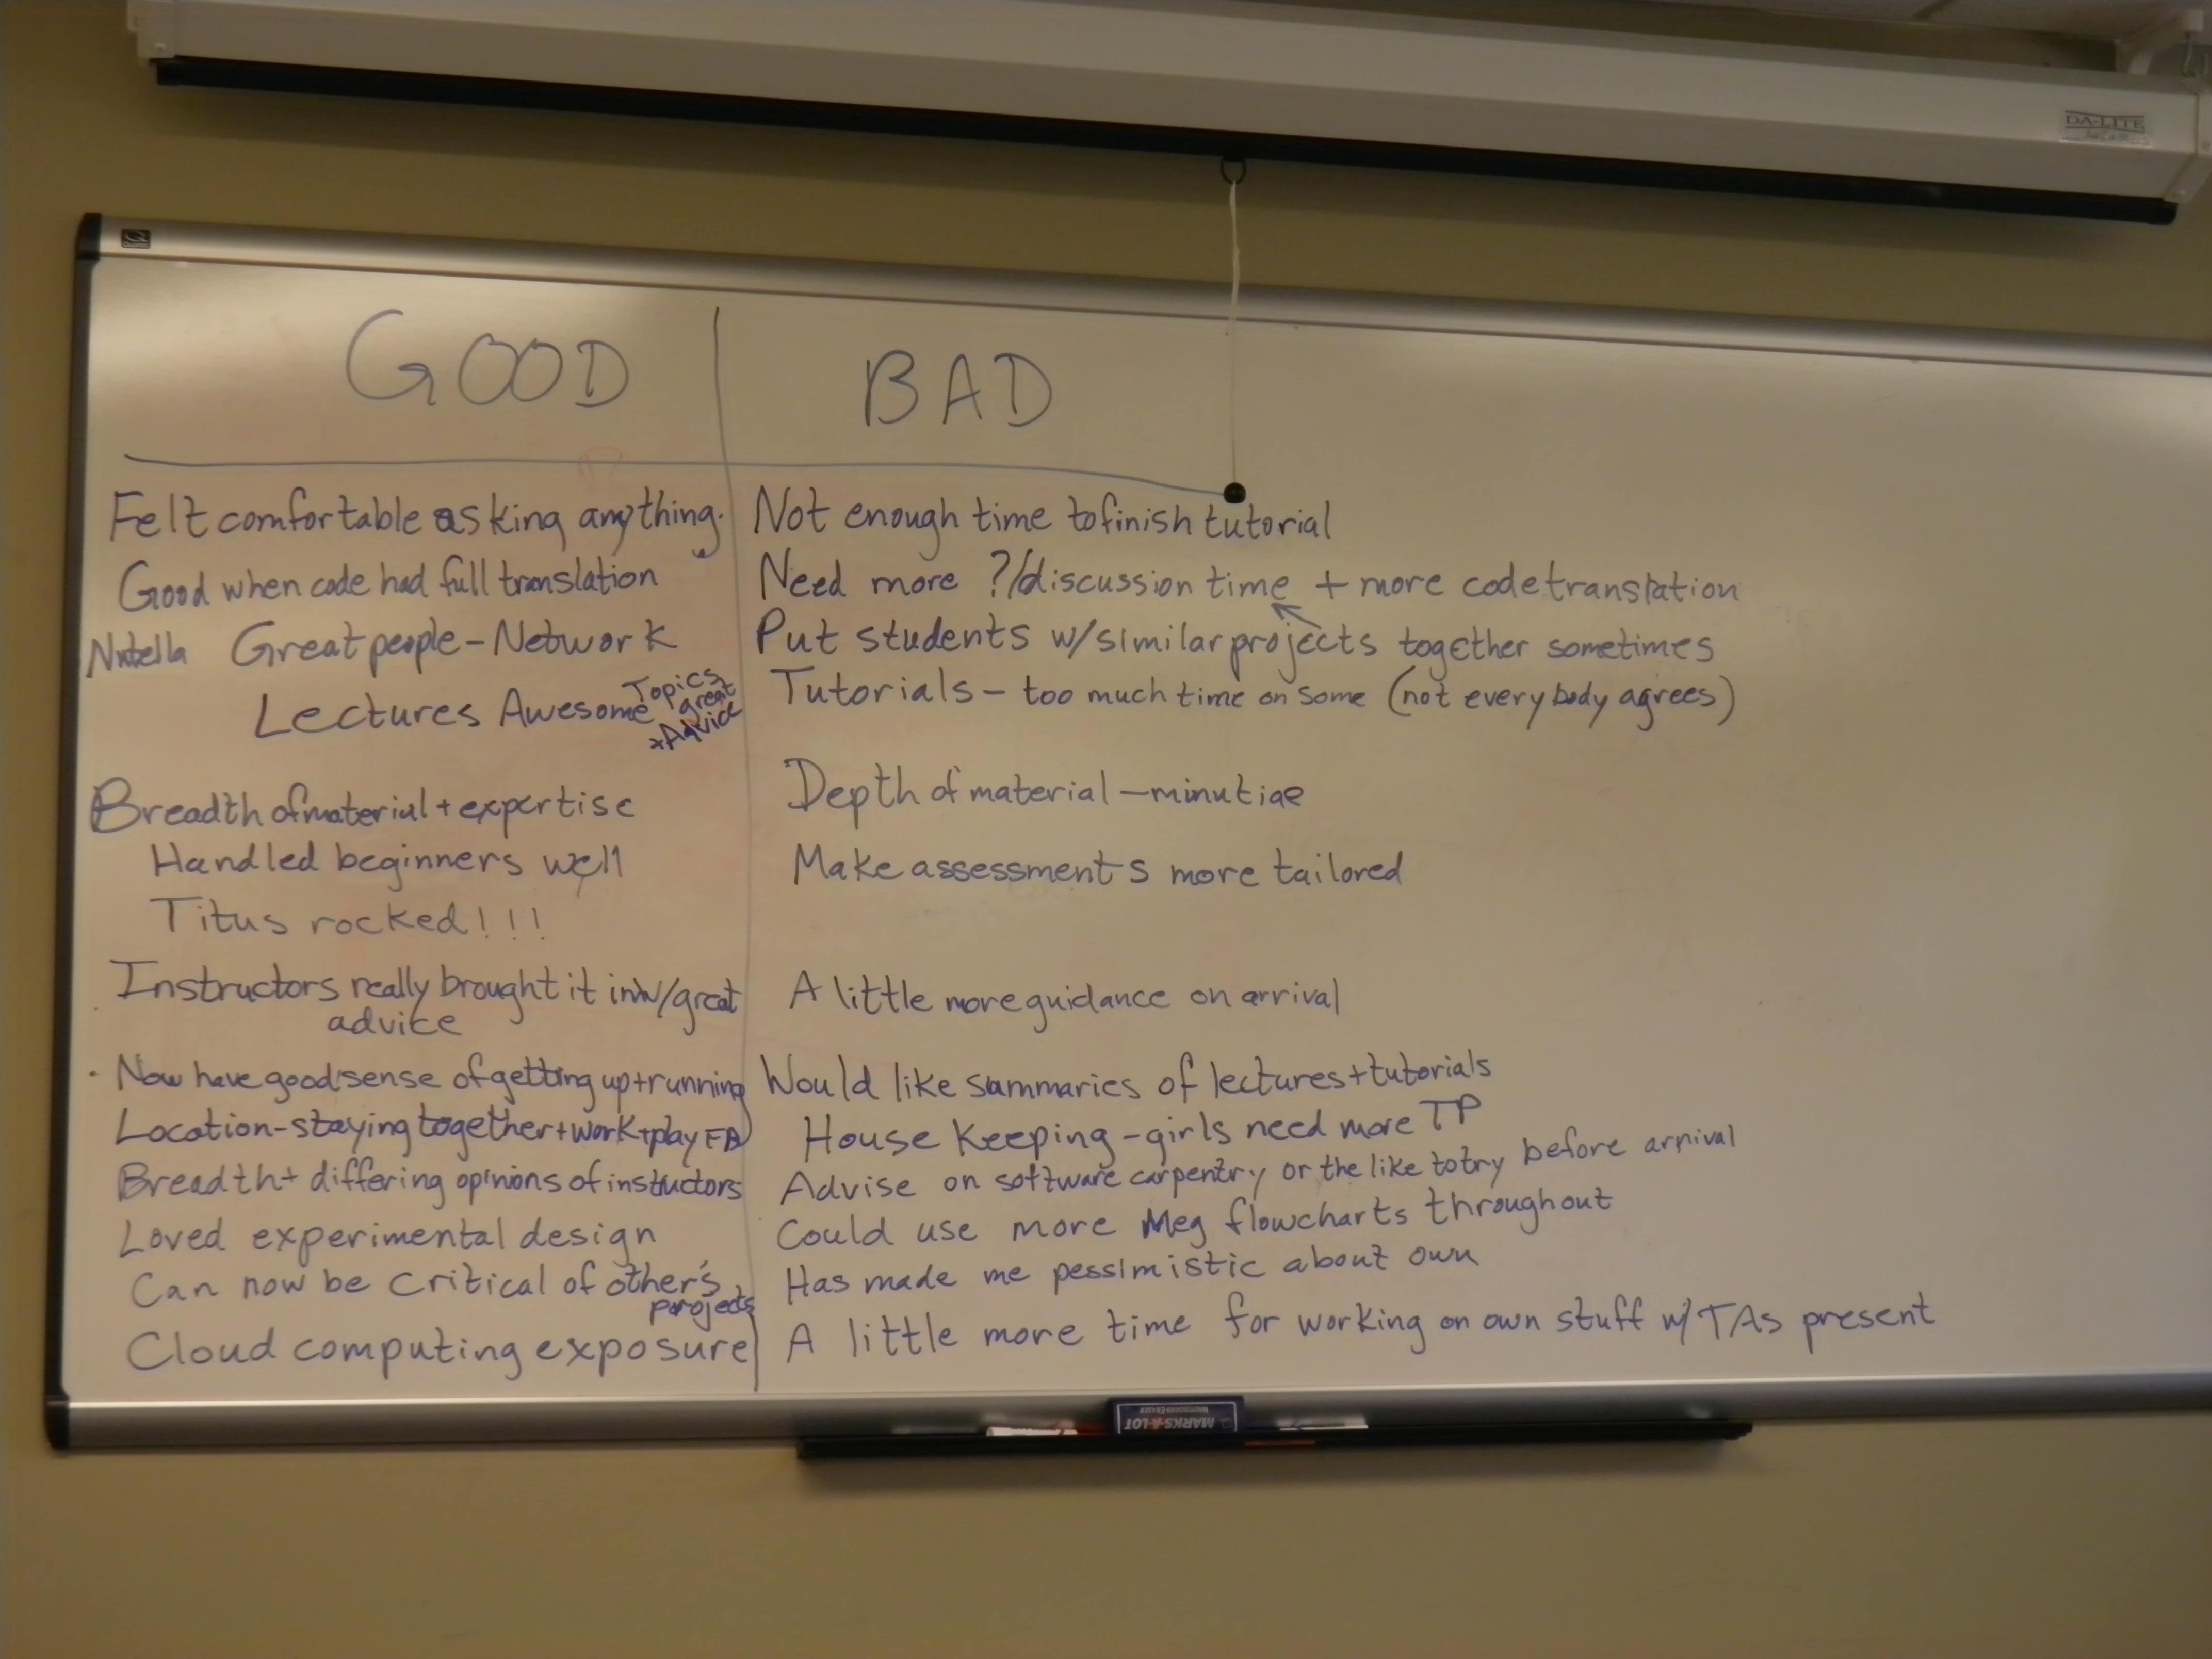 DA-LITE
GOOD
BAD
Felt comfortable asking anything.
Good when code had full translation
Nutella Great people - Network
Lectures Awesome Topics great + Advice
Breadth of material + expertise
Handled beginners well
Titus rocked!!!
Instructors really brought it in w/great
advice
Now have good sense of getting up + running
Location - staying together + work + play
Breadth + differing opinions of instructors
Loved experimental design
Can now be critical of other's
projects
Cloud computing exposure
Not enough time to finish tutorial
Need more ?/discussion time + more code translation
Put students w/similar projects together sometimes
Tutorials - too much time on some (not everybody agrees)
Depth of material - minutiae
Make assessments more tailored
A little more guidance on arrival
Would like summaries of lectures + tutorials
House Keeping - girls need more TP
Advise on software carpentry or the like to try before arrival
Could use more Meg flowcharts throughout
Has made me pessimistic about own
A little more time for working on own stuff w/ TAs present
MARKS-A-LOT